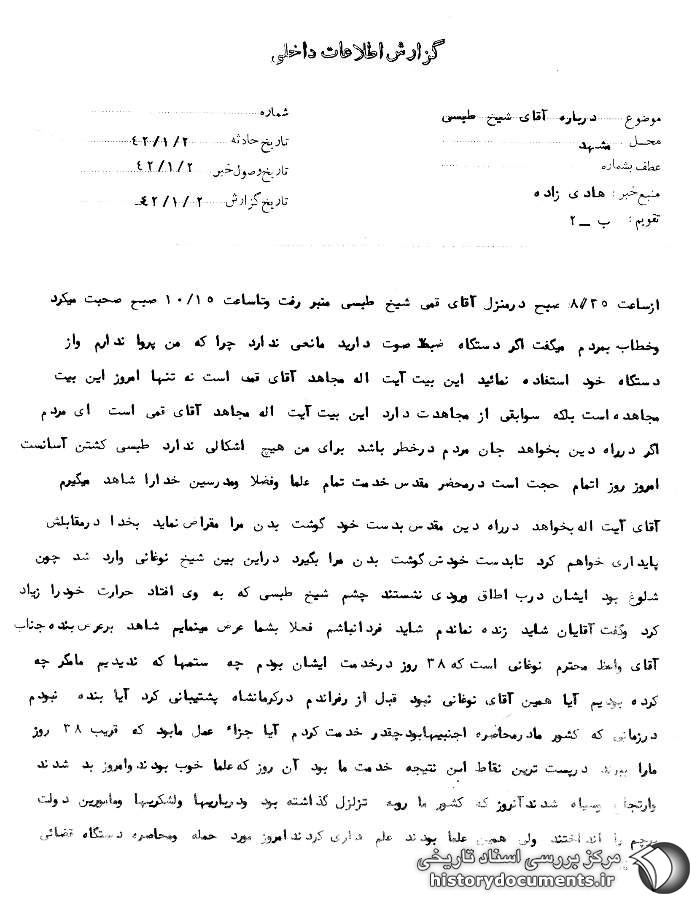 گزارش اطلاعات داخلی
موضوع درباره آقای شیخ طبسی
محل مشهد
عطف بشماره
منبع خبر: هادی زاده
تقویم: ب ــ ۲
شماره
تاریخ حادثه ۴۲/۱/۲
تاریخ وصول خبر ۴۲/۱/۲
تاریخ گزارش ۴۲/۱/۲
ازساعت ۸/۲۵ صبح درمنزل آقای قمی شیخ طبسی منبر رفت وتاساعت ۱۰/۱۵ صبح صحبت میکرد
وخطاب بمردم میگفت اگر دستگاه ضبط صوت دارید مانعی ندارد چرا که من پروا ندارم واز
دستگاه خود استفاده نمائید این بیت آیت اله مجاهد آقای قمی است نه تنها امروز این بیت
مجاهده است بلکه سوابقی از مجاهدت دارد این بیت آیت اله مجاهد آقای قمی است ای مردم
اگر درراه دین بخواهد جان مردم درخطر باشد برای من هیچ اشکالی ندارد طبسی کشتن آسانست
امروز روز اتمام حجت است درمحضر مقدس خدمت تمام علما وفضلا ومدرسین خدارا شاهد میگیرم
آقای آیت اله بخواهد درراه دین مقدس بدست خود گوشت بدن مرا مقراض نماید بخدا درمقابلش
پایداری خواهم کرد تابدست خودش گوشت بدن مرا بگیرد دراین بین شیخ نوغانی وارد شد چون
شلوغ بود ایشان درب اطاق ورودی نشستند چشم شیخ طبسی که به وی افتاد حرارت خودرا زیاد
کرد وگفت آقایان شاید زنده نماندم شاید فردانباشم فعلا بشما عرض مینمایم شاهد برعرض بنده جناب
آقای واعظ محترم نوغانی است که ۳۸ روز درخدمت ایشان بودم چه ستمها که ندیدیم مامگر چه
کرده بودیم آیا همین آقای نوغانی نبود قبل از رفراندم درکرمانشاه پشتیبانی کرد آیا بنده نبودم
درزمانی که کشور مادرمحاصره اجنبیهابودچقدر خدمت کردم آیا جزاء عمل مابود که قریب ۳۸ روز
مارا بردند درپست ترین نقاط این نتیجه خدمت ما بود آن روز که علما خوب بودند وامروز بد شدند
وارتجاع سیاه شدند آنروز که کشور ما روبه تزلزل گذاشته بود ودرباریها ولشکریها ومامورین دولت
پرچم را انداختند ولی همین علما بودند علم داری کردند امروز مورد حمله ومحاصره دستگاه قضائی
مرکز بررسی اسناد تاریخی
historydocuments.ir